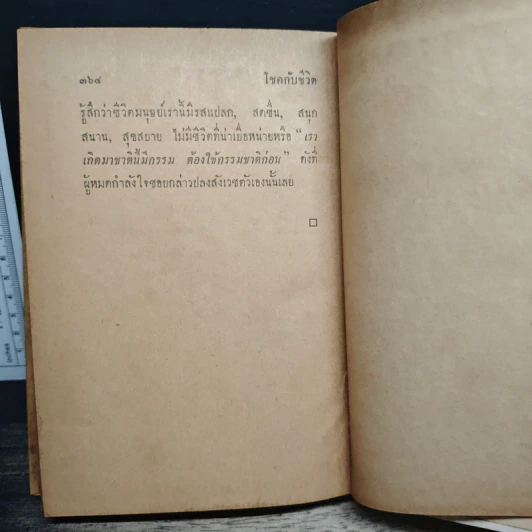 ๓๖๔ โชคกับชีวิต
รู้สึกว่าชีวิตมนุษย์เรานี้มีรสแปลก, สดชื่น, สนุก
สนาน, สุขสบาย ไม่มีชีวิตที่น่าเบื่อหน่ายหรือ “เรา
เกิดมาชาตินี้มีกรรม ต้องใช้กรรมชาติก่อน” ดังที่
ผู้หมดกำลังใจชอบกล่าวปลงสังเวชตัวเองนั้นเลย